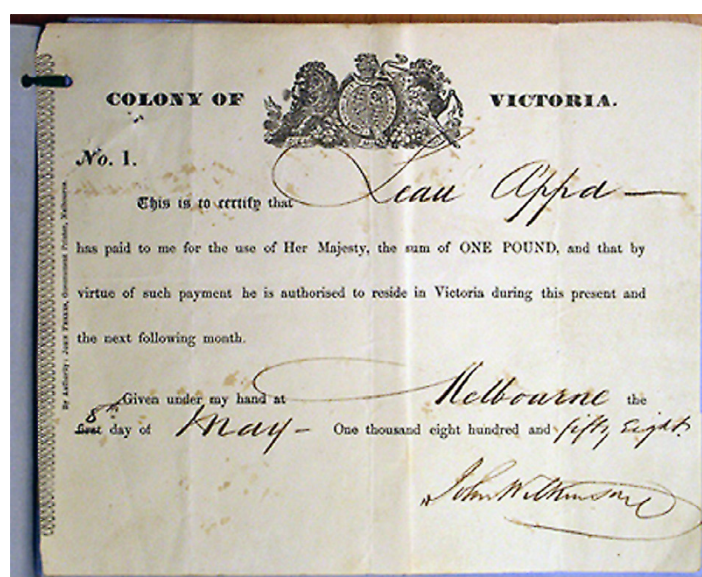 COLONY OF VICTORIA.
No. 1.
This is to certify that Leau Appa
has paid to me for the use of Her Majesty, the sum of ONE POUND, and that by
virtue of such payment he is authorised to reside in Victoria during this present and
the next following month.
Given under my hand at Melbourne the
8th first day of May - One thousand eight hundred and fifty Eight.
John Wilkinson
By Authority: JOHN FERRES, Government Printer, Melbourne.